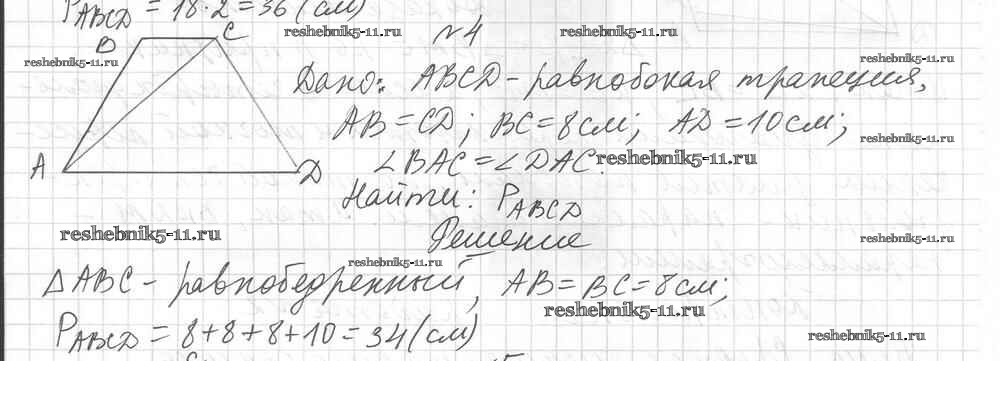 P ABCD = 18·2=36 (см)
B C reshebnik5-11.ru №4 reshebnik5-11.ru
reshebnik5-11.ru reshebnik5-11.ru
Дано: ABCD - равнобокая трапеция,
AB=CD; BC=8см; AD=10см;
reshebnik5-11.ru
A D ∠BAC=∠DAC. reshebnik5-11.ru
Найти: P ABCD
reshebnik5-11.ru Решение reshebnik5-11.ru
reshebnik5-11.ru
△ABC - равнобедренный, AB=BC=8см;
reshebnik5-11.ru
P ABCD = 8+8+8+10=34(см)
reshebnik5-11.ru